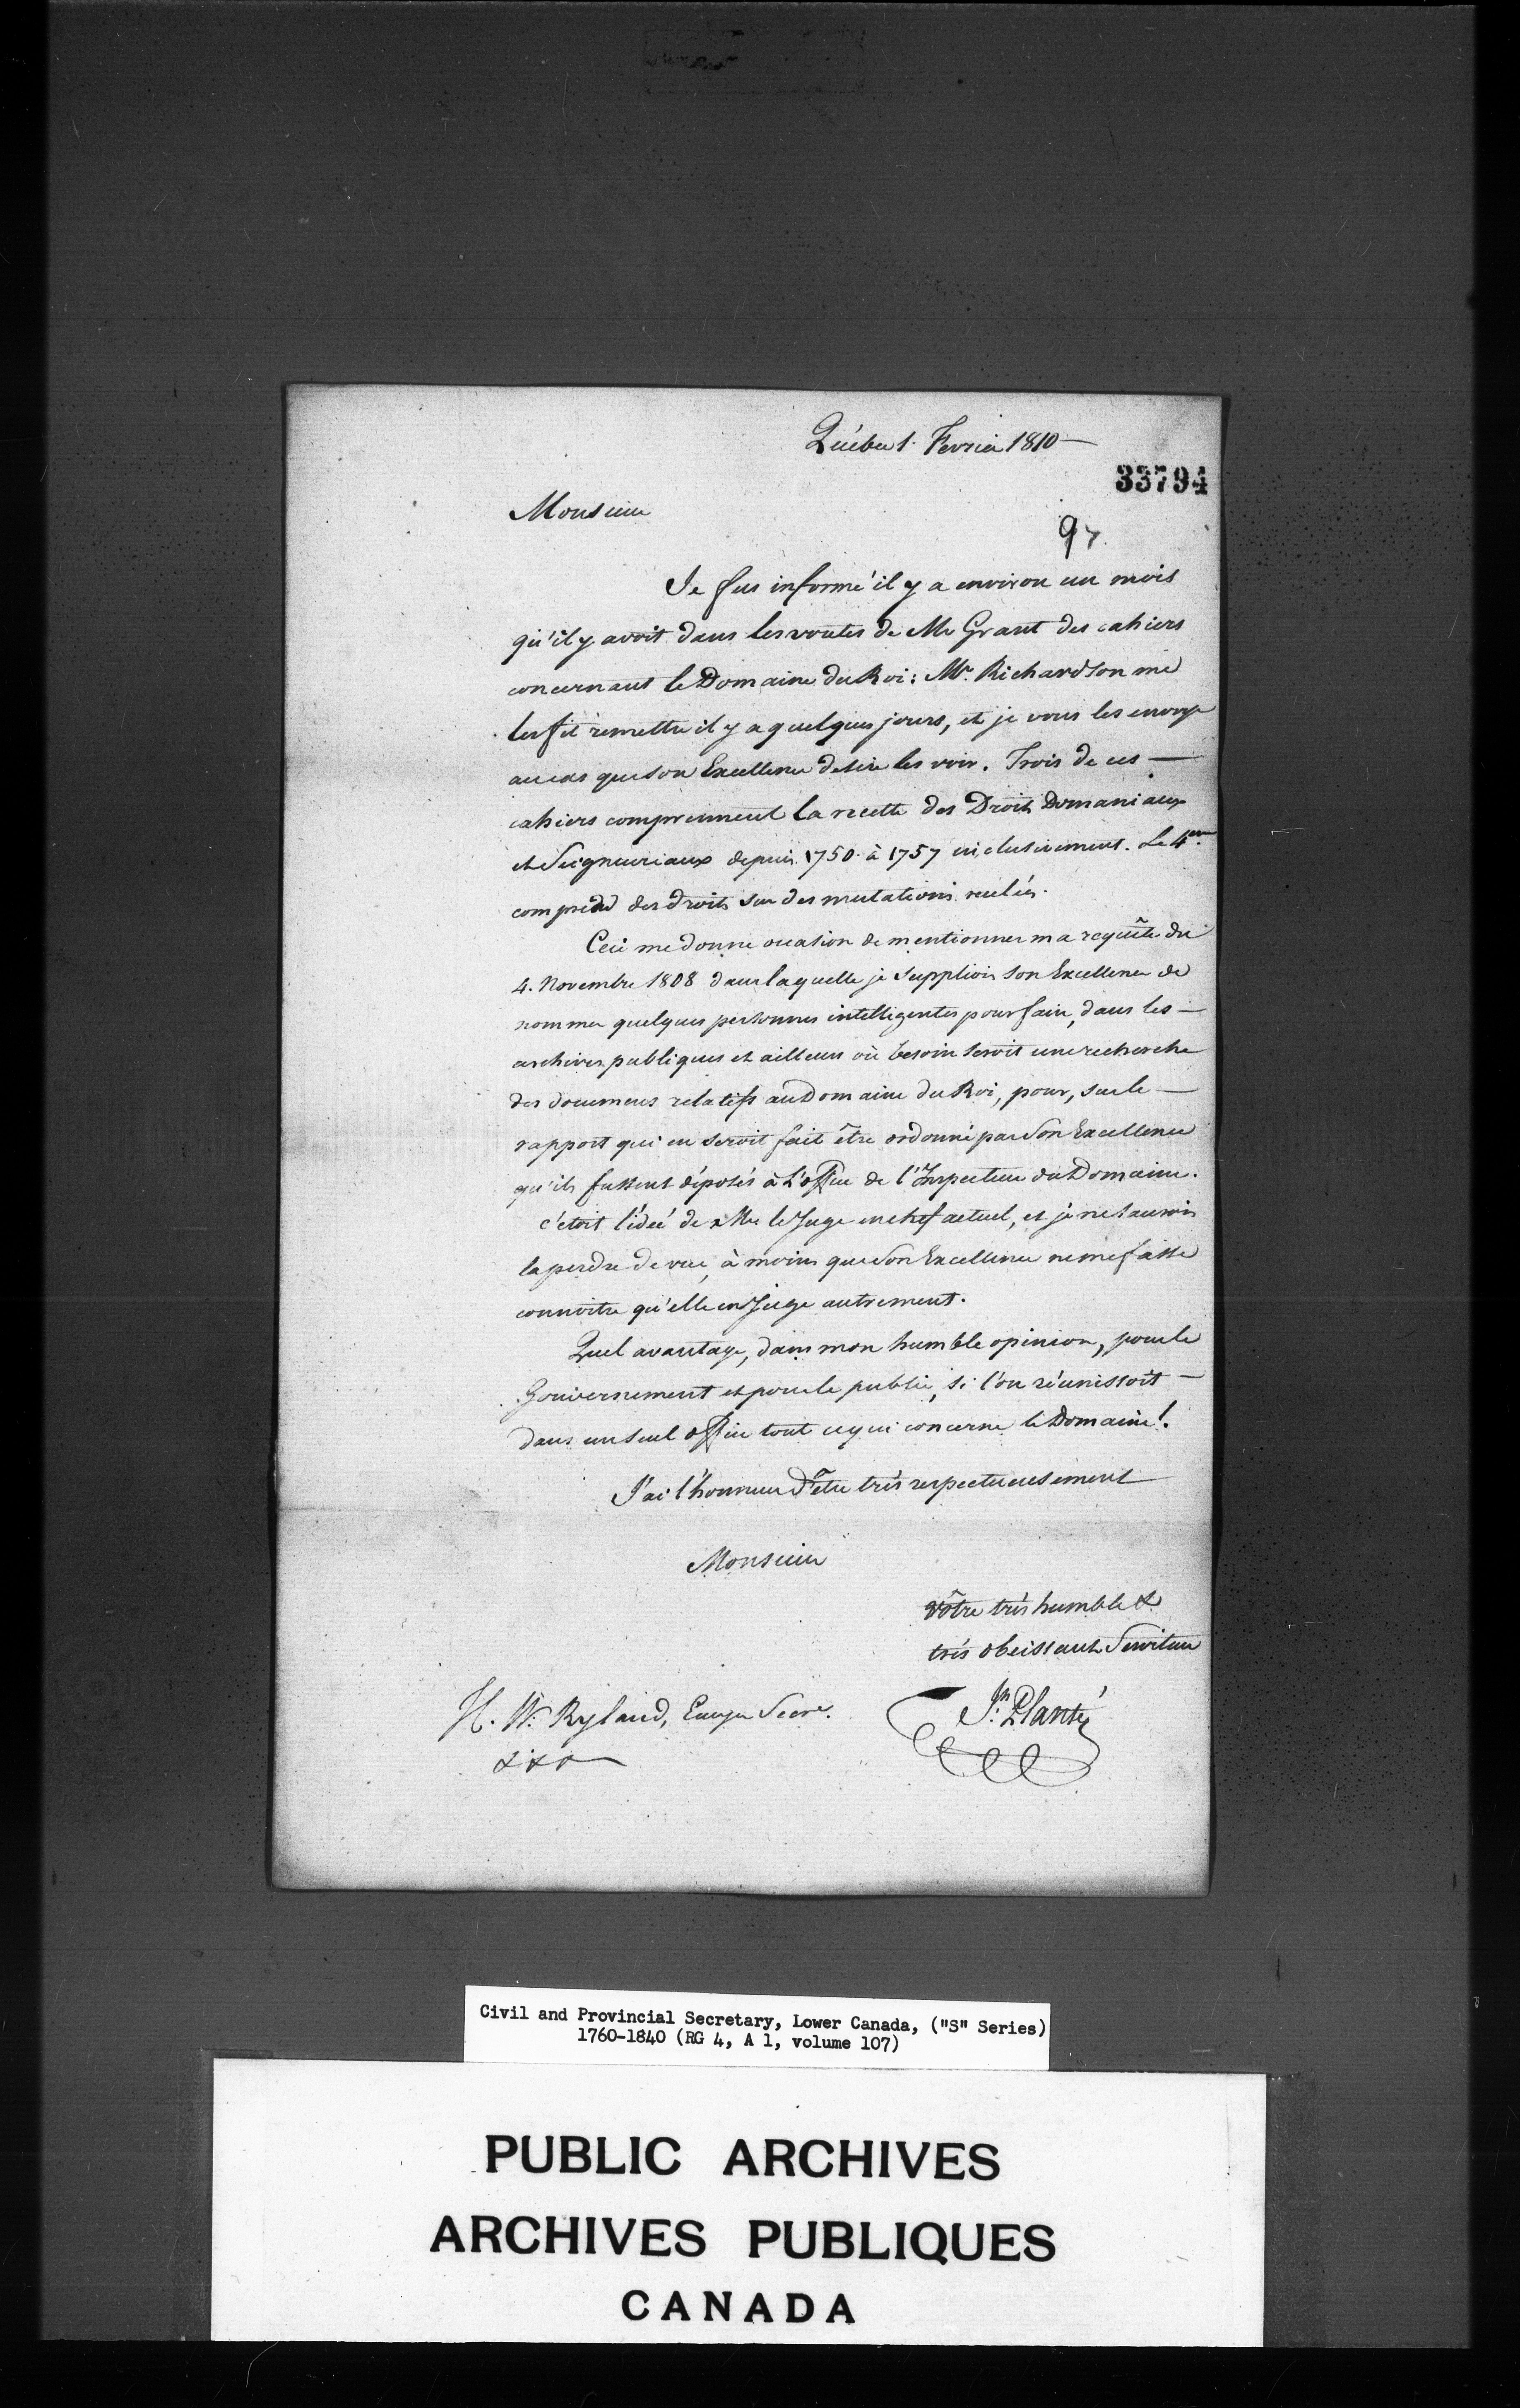 Québec 1. Fevrier 1810 —
33794
Monsieur
97.
Je fus informé il y a environ un mois
qu'il y avoit dans les voutes de Mr Grant des cahiers
concernant le Domaine du Roi: Mr. Richardson me
les fit remettre il y a quelques jours, et je vous les envoye
au cas que son Excellence desire les voir. Trois de ces —
cahiers comprennent la recette des Droits Domaniaux
et Seigneuriaux depuis 1750 à 1757 inclusivement. Le 4em.
comprend des droits sur des mutations reculées.
Ceci me donne occasion de mentionner ma requête du
4. Novembre 1808 dans laquelle je suppliois son Excellence de
nommer quelques personnes intelligentes pour faire, dans les —
archives publiques et ailleurs où besoin seroit une recherche
des documens relatifs au Domaine du Roi, pour, sur le —
rapport qui en seroit fait être ordonné par Son Excellence
qu'ils fussent déposés à L'office de l'Inspecteur du Domaine.
c'étoit l'idée de Mr le Juge en chef actuel, et je ne saurois
la perdre de vue, à moins que Son Excellence ne me fasse
connoitre qu'elle en Juge autrement.
Quel avantage, dans mon humble opinion, pour le
Gouvernement et pour le public, si l'on réunissoit —
dans un seul office tout ce qui concerne le Domaine!
J'ai l'honneur d'être très respectueusement
Monsieur
Vôtre très humble &
très obeissant Serviteur
Jh. Planté
H. W. Ryland, Ecuyer Secre.
&&&
Civil and Provincial Secretary, Lower Canada, ("S" Series)
1760-1840 (RG 4, A 1, volume 107)
PUBLIC ARCHIVES
ARCHIVES PUBLIQUES
CANADA